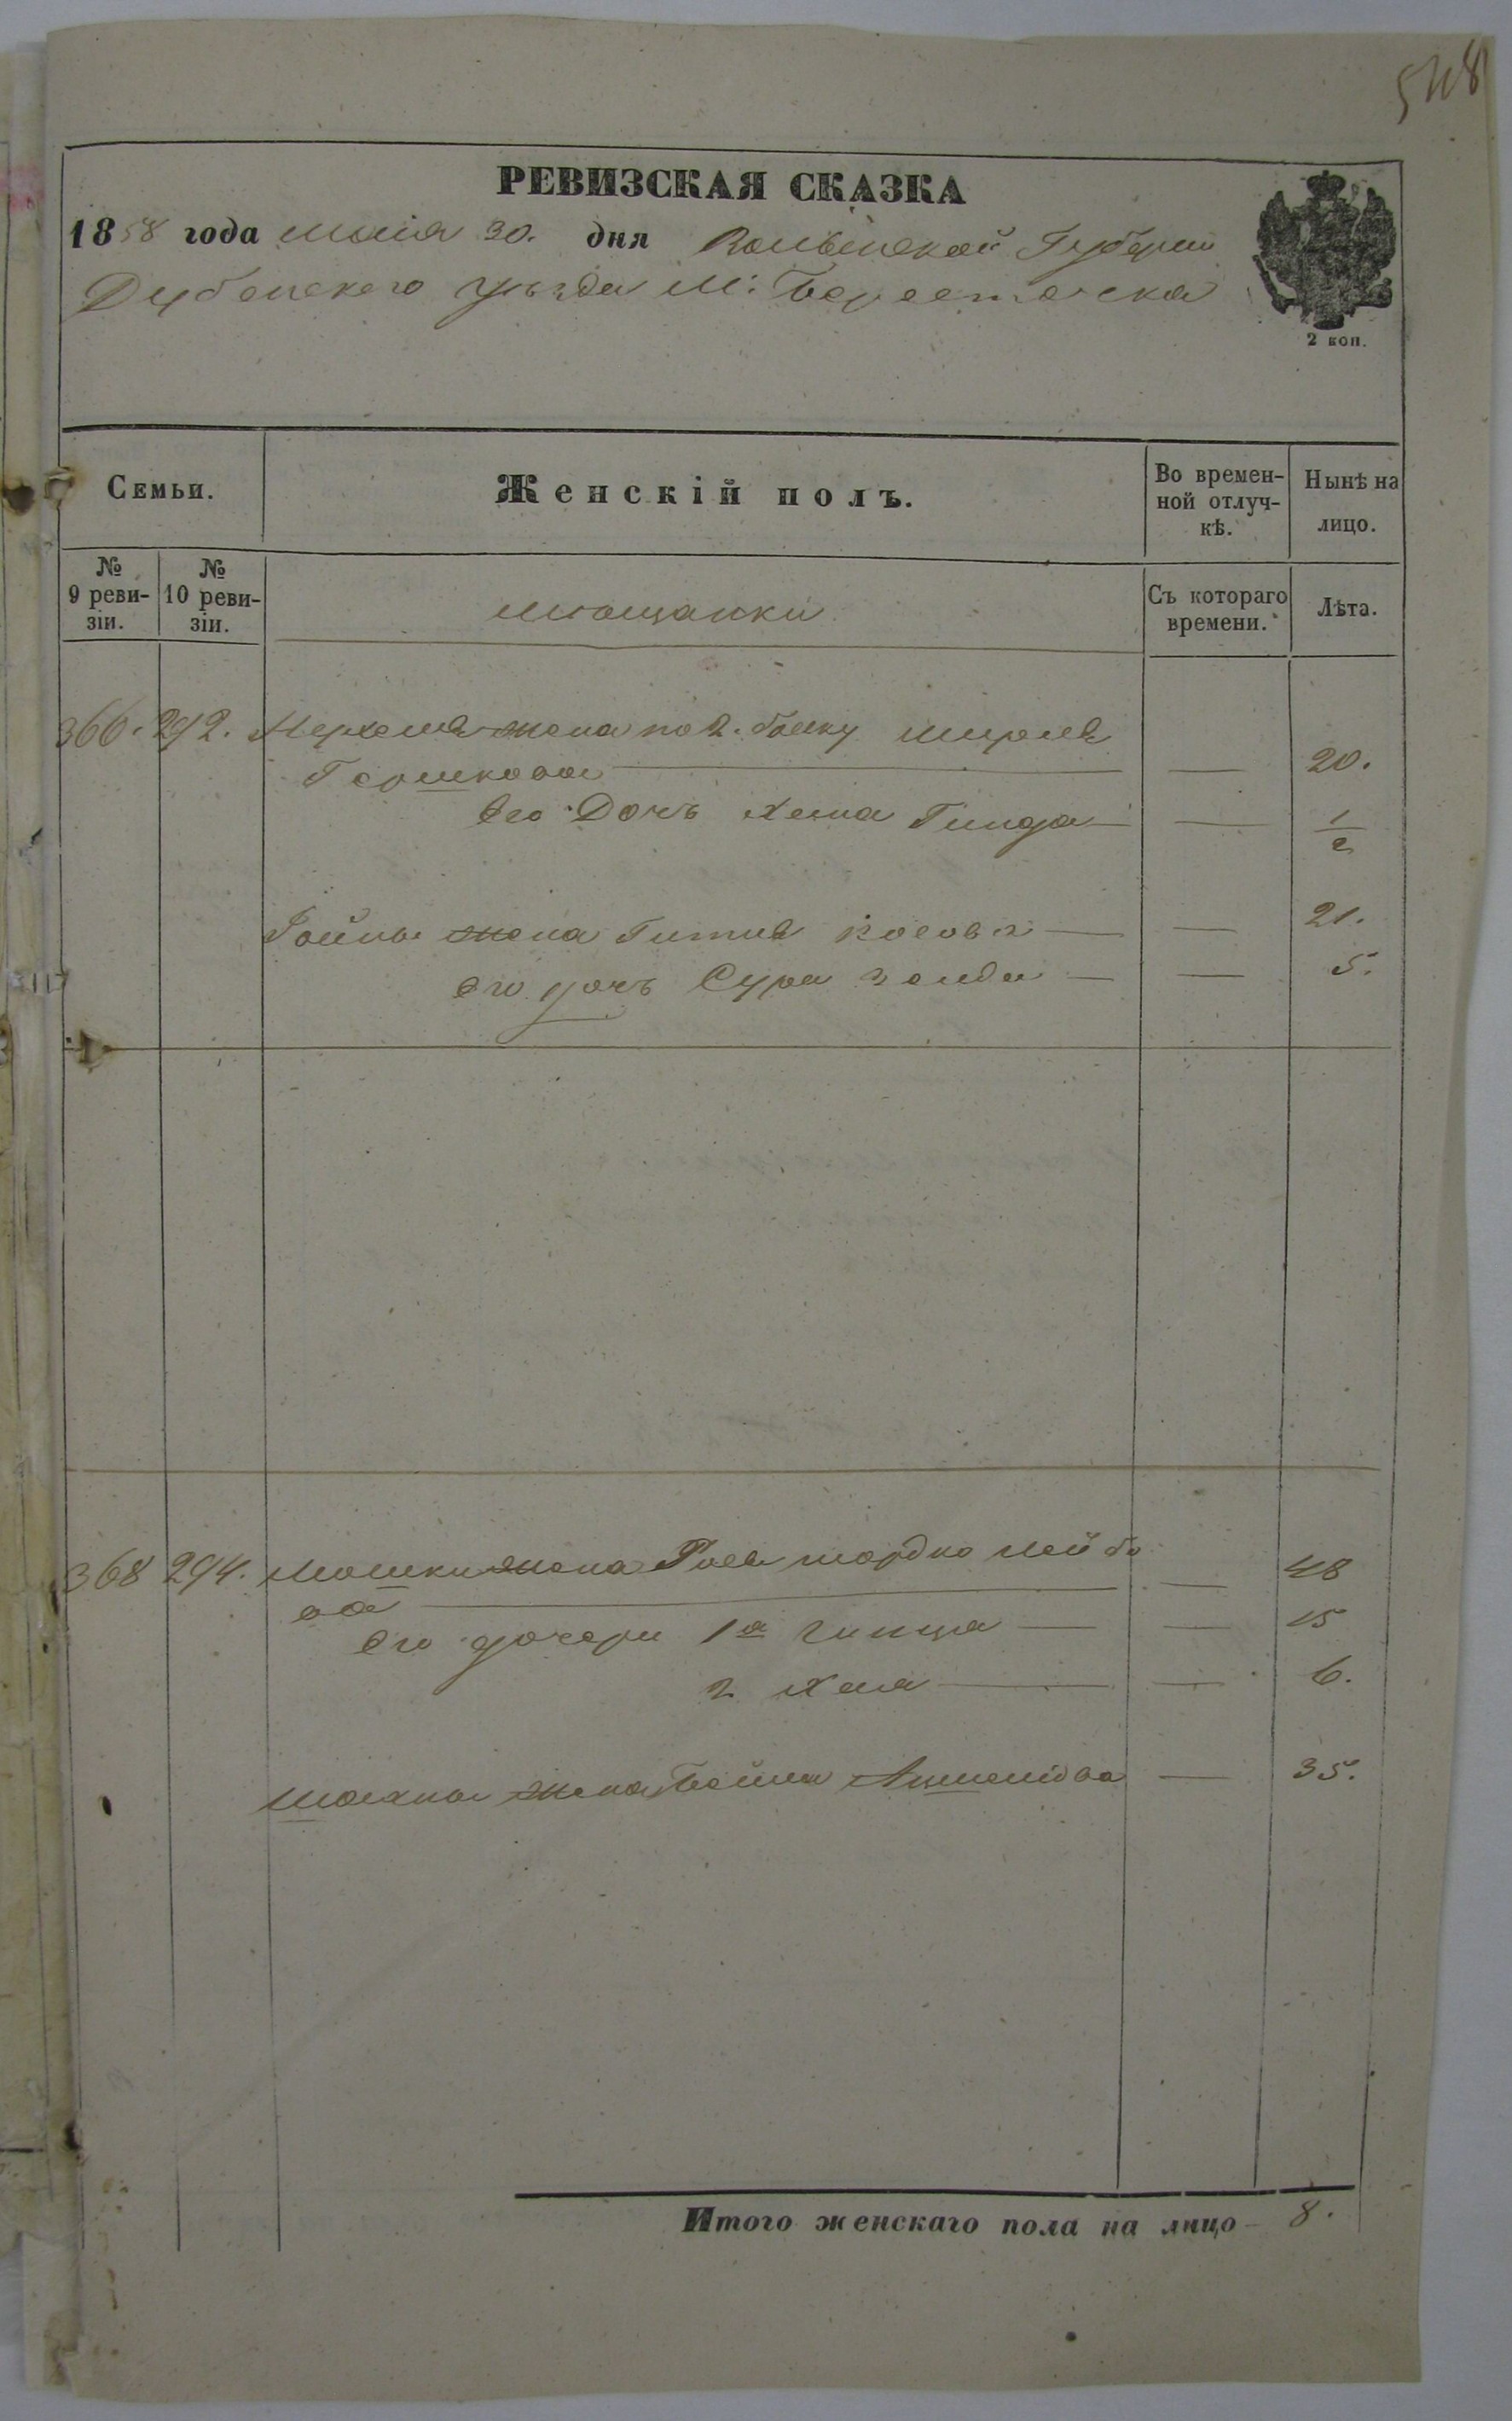 548
РЕВИЗСКАЯ СКАЗКА
1858 года маія 30. дня Волынской Губерніи
Дубенского уѣзда М: Берестечка
2 коп.
Семьи. Женскій полъ. Во времен-ной отлуч-кѣ. Нынѣ на лицо.
№ 9 реви-зіи. № 10 реви-зіи. Мѣщанки Съ котораго времени. Лѣта.
366. 292. жена по 2. браку
Гершкова — — 20.
Его Дочь Хена Гинда — — 1/2
Іойны жена Гитля — — 21.
Его дочь Сура — — 5.
368 294. Мошки жена Мордко Лейбо
ва — — 48
Его дочери 1я — — 15
2 Хая — — 6.
Шахны жена Бейла — 35.
Итого женскаго пола на лицо – 8.